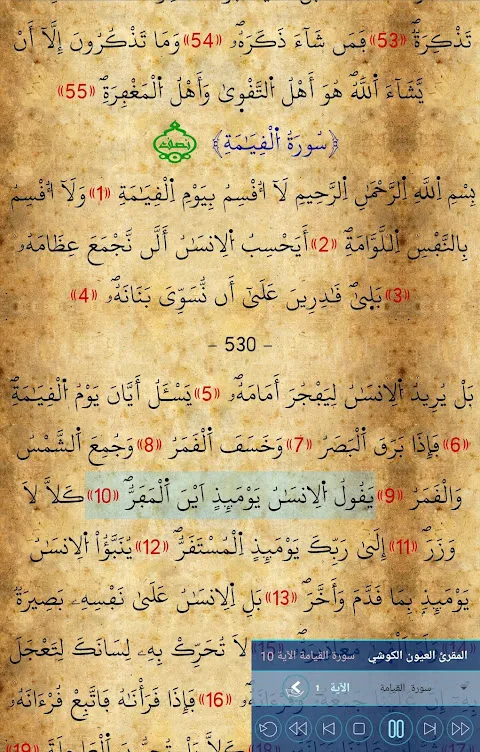 تَذْكِرَةٞ «53» فَمَن شَآءَ ذَكَرَهُۥ «54» وَمَا تَذْكُرُونَ إِلَّآ أَنْ
يَّشَآءَ اَ۬للَّهُ هُوَ أَهْلُ اُ۬لتَّقْو۪يٰ وَأَهْلُ اُ۬لْمَغْفِرَةِۖ «55»
﴿سُورَةُ اُ۬لْقِيَٰمَةِ﴾ نصف
بِسْمِ اِ۬للَّهِ اِ۬لرَّحْمَٰنِ اِ۬لرَّحِيمِ لَآ أُقْسِمُ بِيَوْمِ اِ۬لْقِيَٰمَةِ «1» وَلَآ أُقْسِمُ
بِالنَّفْسِ اِ۬للَّوَّامَةِۖ «2» أَيَحْسِبُ اُ۬لِانسَٰنُ أَلَّن نَّجْمَعَ عِظَامَهُۥ
«3» بَل۪يٰ قَٰدِرِينَ عَلَىٰٓ أَن نُّسَوِّيَ بَنَانَهُۥۖ «4»
- 530 -
بَلْ يُرِيدُ اُ۬لِانسَٰنُ لِيَفْجُرَ أَمَامَهُۥۖ «5» يَسْـَٔلُ أَيَّانَ يَوْمُ اُ۬لْقِيَٰمَةِۖ
«6» فَإِذَا بَرَقَ اَ۬لْبَصَرُ «7» وَخَسَفَ اَ۬لْقَمَرُ «8» وَجُمِعَ اَ۬لشَّمْسُ
وَالْقَمَرُ «9» يَقُولُ اُ۬لِانسَٰنُ يَوْمَئِذٍ اَيْنَ اَ۬لْمَفَرُّۖ «10» كَلَّا لَا
وَزَرَۖ «11» إِلَىٰ رَبِّكَ يَوْمَئِذٍ اِ۬لْمُسْتَقَرُّۖ «12» يُنَبَّؤُاْ اُ۬لِانسَٰنُ
يَوْمَئِذٍۢ بِمَا قَدَّمَ وَأَخَّرَۖ «13» بَلِ اِ۬لِانسَٰنُ عَلَىٰ نَفْسِهِۦ بَصِيرَةٞ
لَا تُحَرِّكْ بِهِۦ لِسَانَكَ لِتَعْجَلَ
«16» فَإِذَا قَرَأْنَٰهُ فَاتَّبِعْ قُرْءَانَهُۥ
المقرئ العيون الكوشي سورة القيامة الآية 10
سورة القيامة الآية 1